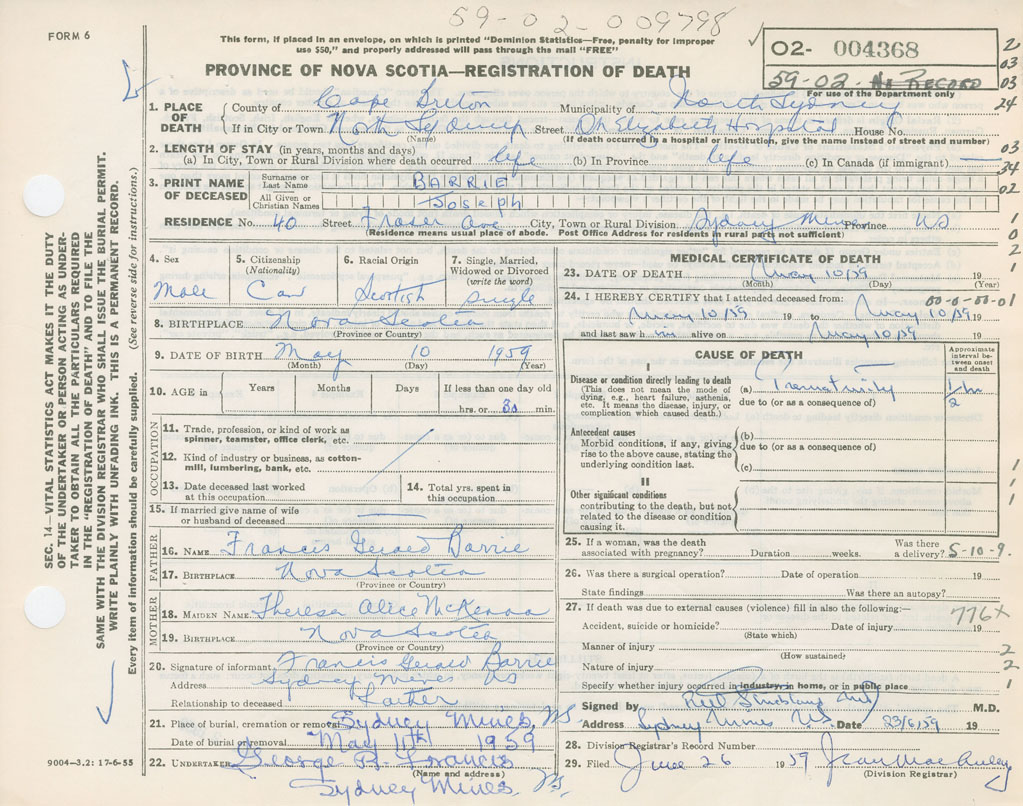 59-02-009798
FORM 6
This form, if placed in an envelope, on which is printed "Dominion Statistics—Free, penalty for improper
use $50," and properly addressed will pass through the mail "FREE"
O2- 004368
59-02- No RECORD
For use of the Department only
PROVINCE OF NOVA SCOTIA—REGISTRATION OF DEATH
1. PLACE OF DEATH County of Cape Breton Municipality of North Sydney
If in City or Town North Sydney Street St Elizabeth Hospital House No.
(Name) (If death occurred in a hospital or institution, give the name instead of street and number)
2. LENGTH OF STAY (in years, months and days)
(a) In City, Town or Rural Division where death occurred life (b) In Province life (c) In Canada (if immigrant) —
3. PRINT NAME OF DECEASED Surname or Last Name BARRIE
All Given or Christian Names Joseph
RESIDENCE No. 40 Street Fraser Ave City, Town or Rural Division Sydney Mines Province NS
(Residence means usual place of abode. Post Office Address for residents in rural parts not sufficient)
4. Sex Male
5. Citizenship (Nationality) Can
6. Racial Origin Scottish
7. Single, Married, Widowed or Divorced (write the word) single
8. BIRTHPLACE Nova Scotia
(Province or Country)
9. DATE OF BIRTH May 10 1959
(Month) (Day) (Year)
10. AGE in Years Months Days If less than one day old
hrs. or 30 min.
OCCUPATION
11. Trade, profession, or kind of work as spinner, teamster, office clerk, etc.
12. Kind of industry or business, as cotton-mill, lumbering, bank, etc.
13. Date deceased last worked at this occupation
14. Total yrs. spent in this occupation
15. If married give name of wife or husband of deceased —
FATHER
16. NAME Francis Gerard Barrie
17. BIRTHPLACE Nova Scotia
(Province or Country)
MOTHER
18. MAIDEN NAME Theresa Alice McKenna
19. BIRTHPLACE Nova Scotia
(Province or Country)
20. Signature of informant Francis Gerard Barrie
Address Sydney Mines NS
Relationship to deceased Father
21. Place of burial, cremation or removal Sydney Mines, NS
Date of burial or removal May 11th 1959
22. UNDERTAKER George R. Francis
(Name and address)
Sydney Mines, NS.
MEDICAL CERTIFICATE OF DEATH
23. DATE OF DEATH May 10/59 19
(Month) (Day) (Year)
24. I HEREBY CERTIFY that I attended deceased from: 00-0-00-01
May 10/59 19 to May 10/59 19
and last saw him alive on May 10/59 19
CAUSE OF DEATH
Approximate interval between onset and death
I
Disease or condition directly leading to death (a) Prematurity 1/2 hr
(This does not mean the mode of dying, e.g., heart failure, asthenia, etc. It means the disease, injury, or complication which caused death.)
due to (or as a consequence of)
Antecedent causes
Morbid conditions, if any, giving rise to the above cause, stating the underlying condition last.
(b)
due to (or as a consequence of)
(c)
II
Other significant conditions
contributing to the death, but not related to the disease or condition causing it.
25. If a woman, was the death associated with pregnancy? Duration weeks. Was there a delivery? 5-10-9.
26. Was there a surgical operation? Date of operation 19
State findings Was there an autopsy?
27. If death was due to external causes (violence) fill in also the following:— 776x
Accident, suicide or homicide? Date of injury 19
(State which)
Manner of injury
(How sustained)
Nature of injury
Specify whether injury occurred in industry, in home, or in public place
Signed by M.D.
Address Sydney Mines NS Date 23/6/59 19
28. Division Registrar's Record Number
29. Filed June 26 1959
(Division Registrar)
SEC. 14—VITAL STATISTICS ACT MAKES IT THE DUTY
OF THE UNDERTAKER OR PERSON ACTING AS UNDER-
TAKER TO OBTAIN ALL THE PARTICULARS REQUIRED
IN THE "REGISTRATION OF DEATH" AND TO FILE THE
SAME WITH THE DIVISION REGISTRAR WHO SHALL ISSUE THE BURIAL PERMIT.
WRITE PLAINLY WITH UNFADING INK. THIS IS A PERMANENT RECORD.
Every item of information should be carefully supplied. (See reverse side for instructions.)
9004-3.2: 17-6-55
2
03
03
24
03
34
02
1
0
2
1
1
1
1
2
2
1